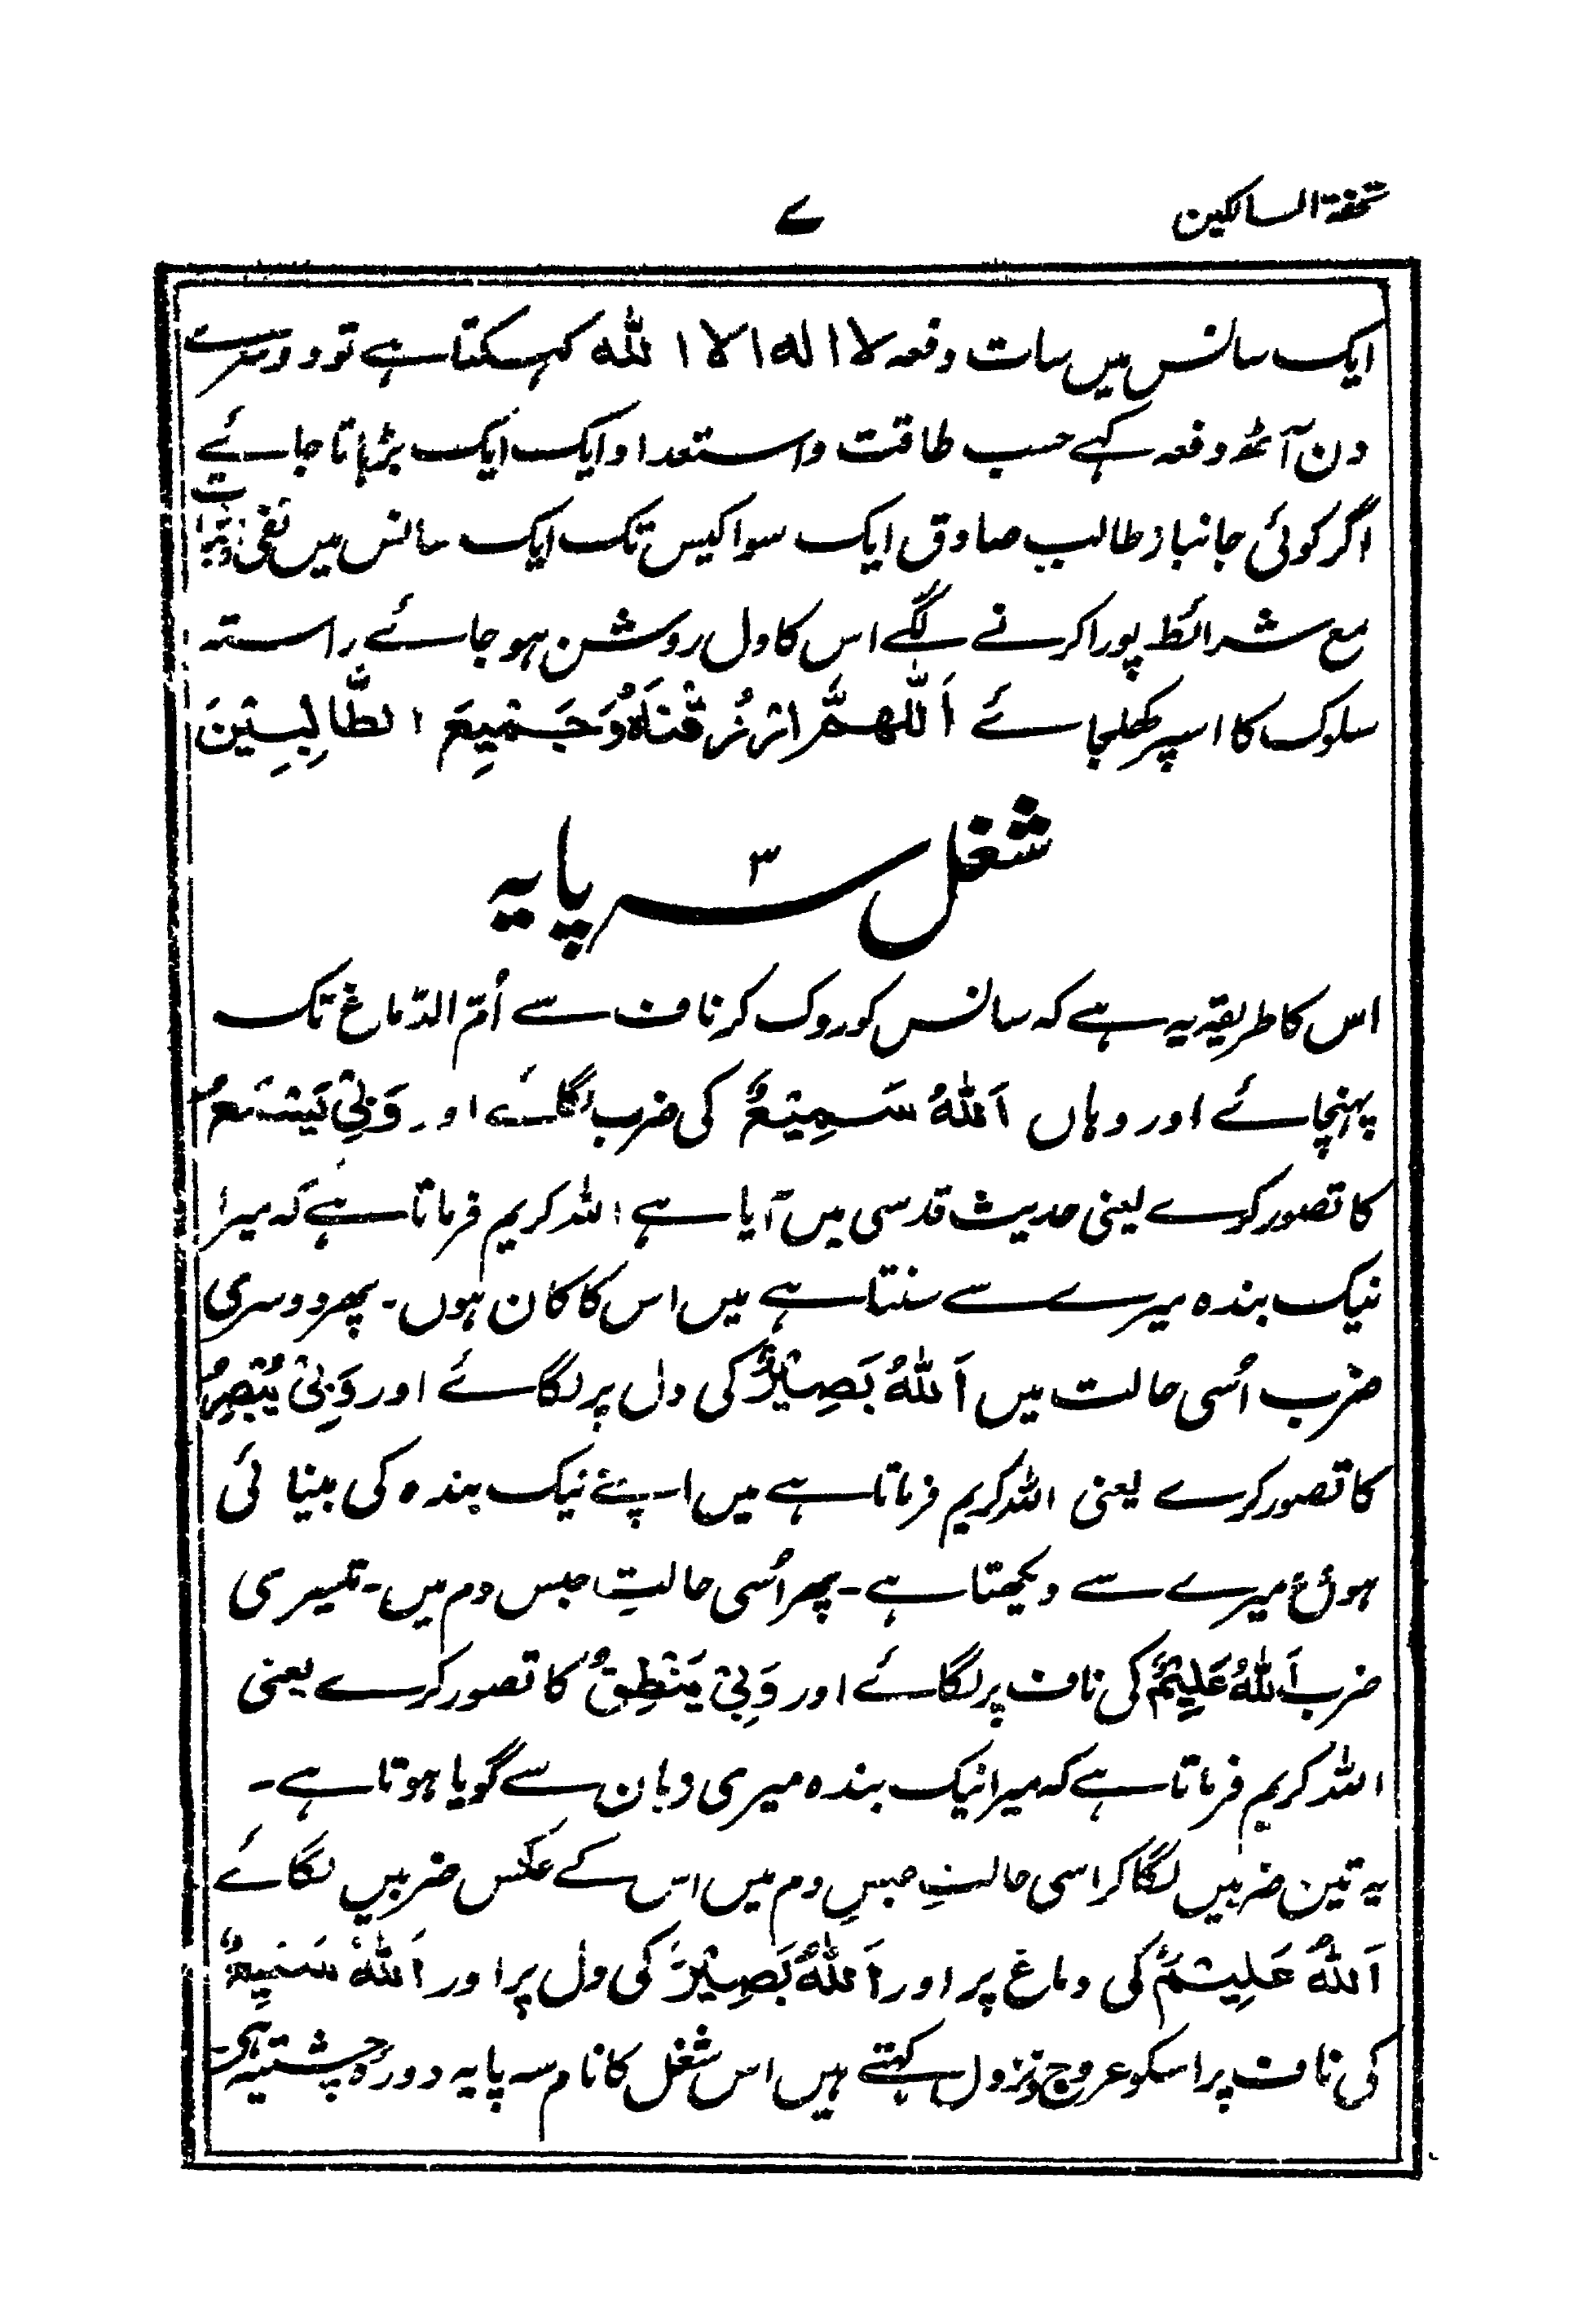 تحفۃ السالکین ۷
ایک سانس میں سات دفعہ لا الہ الا اللہ کہہ سکتا ہے تو دوسرے
دن آٹھ دفعہ کہے حسب طاقت واستعداد ایک ایک بڑہاتا جائے
اگر کوئی جانباز طالب صادق ایک سو اکیس تک ایک سانس میں نفی واثبات
مع شرائط پورا کرنے لگے اس کا دل روشن ہو جائے راستہ
سلوک کا اسپر کھلجائے اَللّٰھُمَّ ارْزُقْنَاہُ وَجَمِیْعَ الطَّالِبِیْنَ
شغل سہ پایہ
۳
اس کا طریقہ یہ ہے کہ سانس کو روک کر ناف سے اُمّ الدّماغ تک
پہنچائے اور وہاں اَللّٰہُ سَمِیْعٌ کی ضرب لگائے اور وَبِیْ یَسْمَعُ
کا تصور کرے یعنی حدیث قدسی میں آیا ہے اللہ کریم فرماتا ہے کہ میرا
نیک بندہ میرے سے سنتا ہے میں اس کا کان ہوں۔ پھر دوسری
ضرب اُسی حالت میں اَللّٰہُ بَصِیْرٌ کی دل پر لگائے اور وَبِیْ یُبْصِرُ
کا تصور کرے یعنی اللہ کریم فرماتا ہے میں اپنے نیک بندہ کی بینائی
ہوں میرے سے دیکھتا ہے۔ پھر اُسی حالتِ حبس دم میں۔ تیسری
ضرب اَللّٰہُ عَلِیْمٌ کی ناف پر لگائے اور وَبِیْ یَنْطِقُ کا تصور کرے یعنی
اللہ کریم فرماتا ہے کہ میرا نیک بندہ میری دہان سے گویا ہوتا ہے۔
یہ تین ضربیں لگا کر اسی حالتِ حبسِ دم میں اس کے عکس ضربیں لگائے
اَللّٰہُ عَلِیْمٌ کی دماغ پر اور اَللّٰہُ بَصِیْرٌ کی دل پر اور اَللّٰہُ سَمِیْعٌ
کی ناف پر اسکو عروج ونزول کہتے ہیں اس شغل کا نام سہ پایہ دورہ چشتیہ ہے